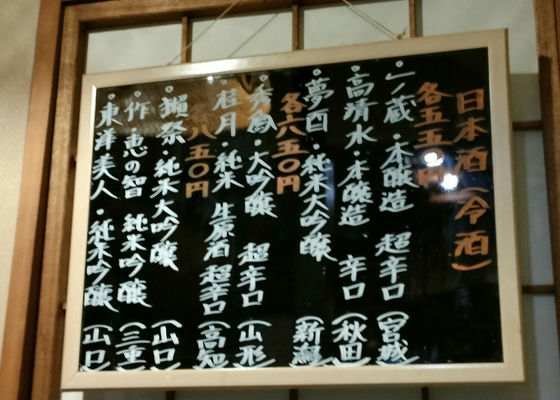 日本酒(冷酒)
各五五〇円
・一ノ蔵・本醸造 超辛口(宮城)
・高清水・本醸造 辛口(秋田)
・夢酉・純米大吟醸(新潟)
各六五〇円
・秀鳳・大吟醸 超辛口(山形)
・桂月・純米 生原酒 超辛口(高知)
八五〇円
・獺祭 純米大吟醸(山口)
・作・恵の智 純米吟醸(三重)
・東洋美人・純米吟醸(山口)